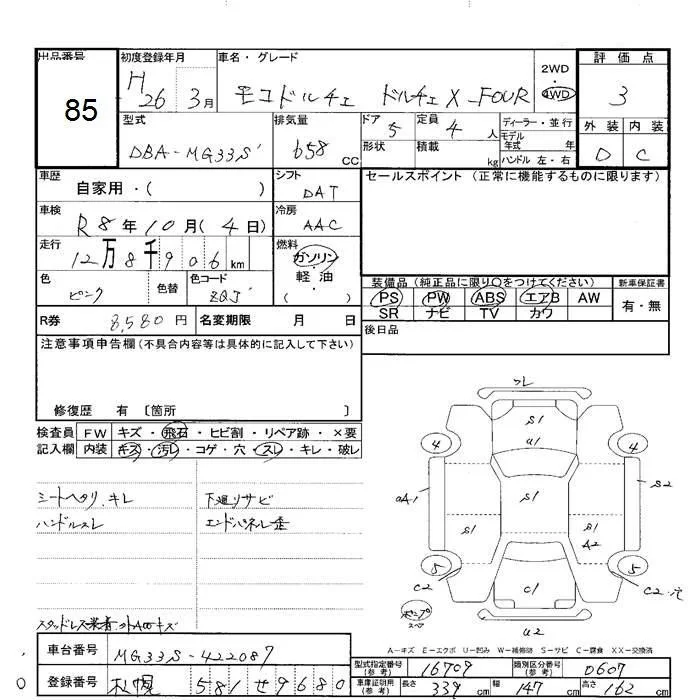 出品番号 85
初度登録年月 H 26 3月
車名・グレード モコドルチェ ドルチェX-FOUR
2WD 4WD
評価点 3
外装 D 内装 C
型式 DBA-MG33S
排気量 658 CC
ドア 5 定員 4 人
形状 積載 kg
ディーラー・並行
モデル年式 年
ハンドル 左・右
車歴 自家用・( )
シフト DAT
セールスポイント (正常に機能するものに限ります)
車検 R8年10月(4日)
冷房 AAC
走行 12万8千906km
燃料 ガソリン・軽・油 ( )
色 ピンク 色替 色コード ZQJ
装備品(純正品に限り○をつけてください) 新車保証書
PS PW ABS エアB AW 有・無
SR ナビ TV カワ
R券 8,580円 名変期限 月 日
後日品
注意事項申告欄(不具合内容等は具体的に記入して下さい)
修復歴 有 〔箇所
検査員 FW キズ・飛石・ヒビ割・リペア跡・×要
記入欄 内装 キズ・汚レ・コゲ・穴・スレ・キレ・破レ
シートヘタリ、キレ 下廻リサビ
ハンドルスレ エンドパネル歪
フレ
S1
U1
4 4
S1
aA1 S2
S1 S1
A2
5 5
C2 C2・穴
C1
U2
A-キズ E-エクボ U-凹み W-補修跡 S-サビ C-腐食 XX-交換済
車台番号 MG33S-422087
登録番号 札幌 581 せ 9680
型式指定番号(参考) 16709 類別区分番号(参考) 0607
車庫証明用(参考) 長さ 339 cm 幅 147 高さ 162
0